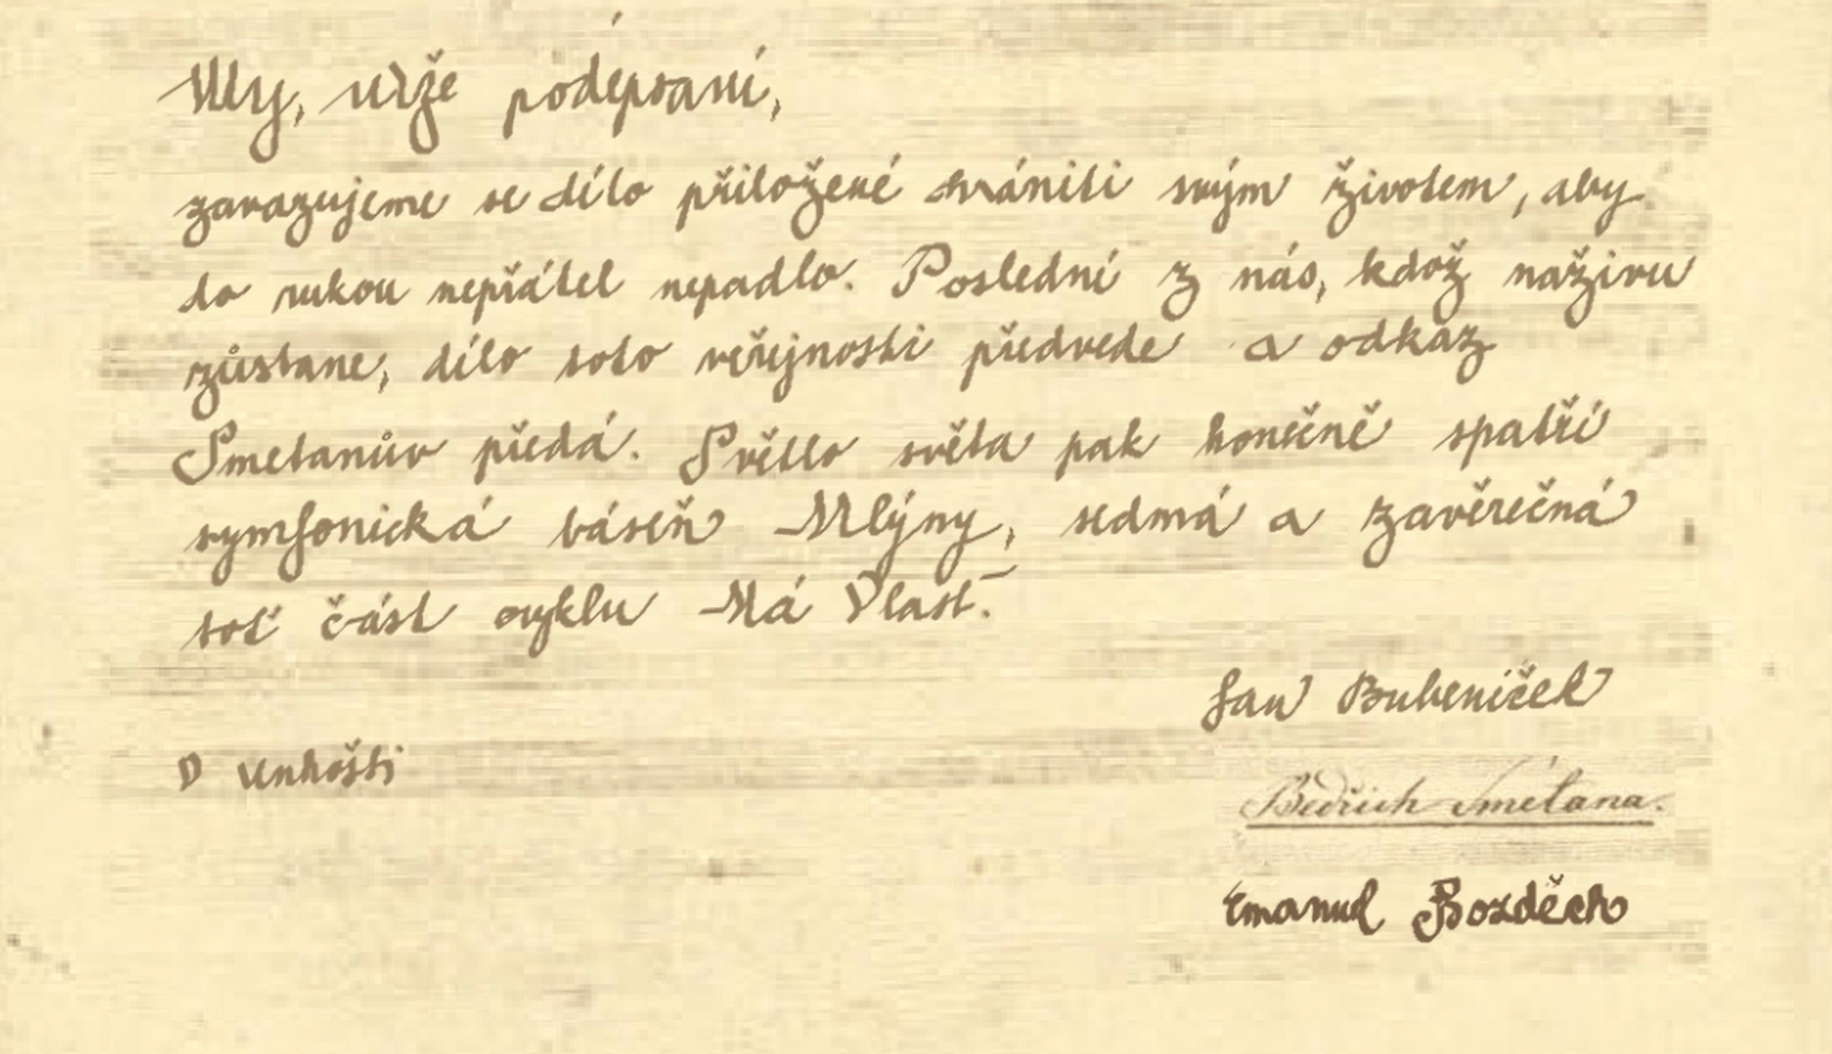 My, níže podepsaní,
zavazujeme se dílo přiložené chrániti svým životem, aby
do rukou nepřátel nepadlo. Poslední z nás, kdož naživu
zůstane, dílo toto veřejnosti předvede a odkaz
Smetanův předá. Světlo světa pak konečně spatří
symfonická báseň Mlýny, sedmá a závěrečná
toť část cyklu Má Vlast.
Jan Bubeníček
V Unhošti
Bedřich Smetana.
Emanuel Bozděch